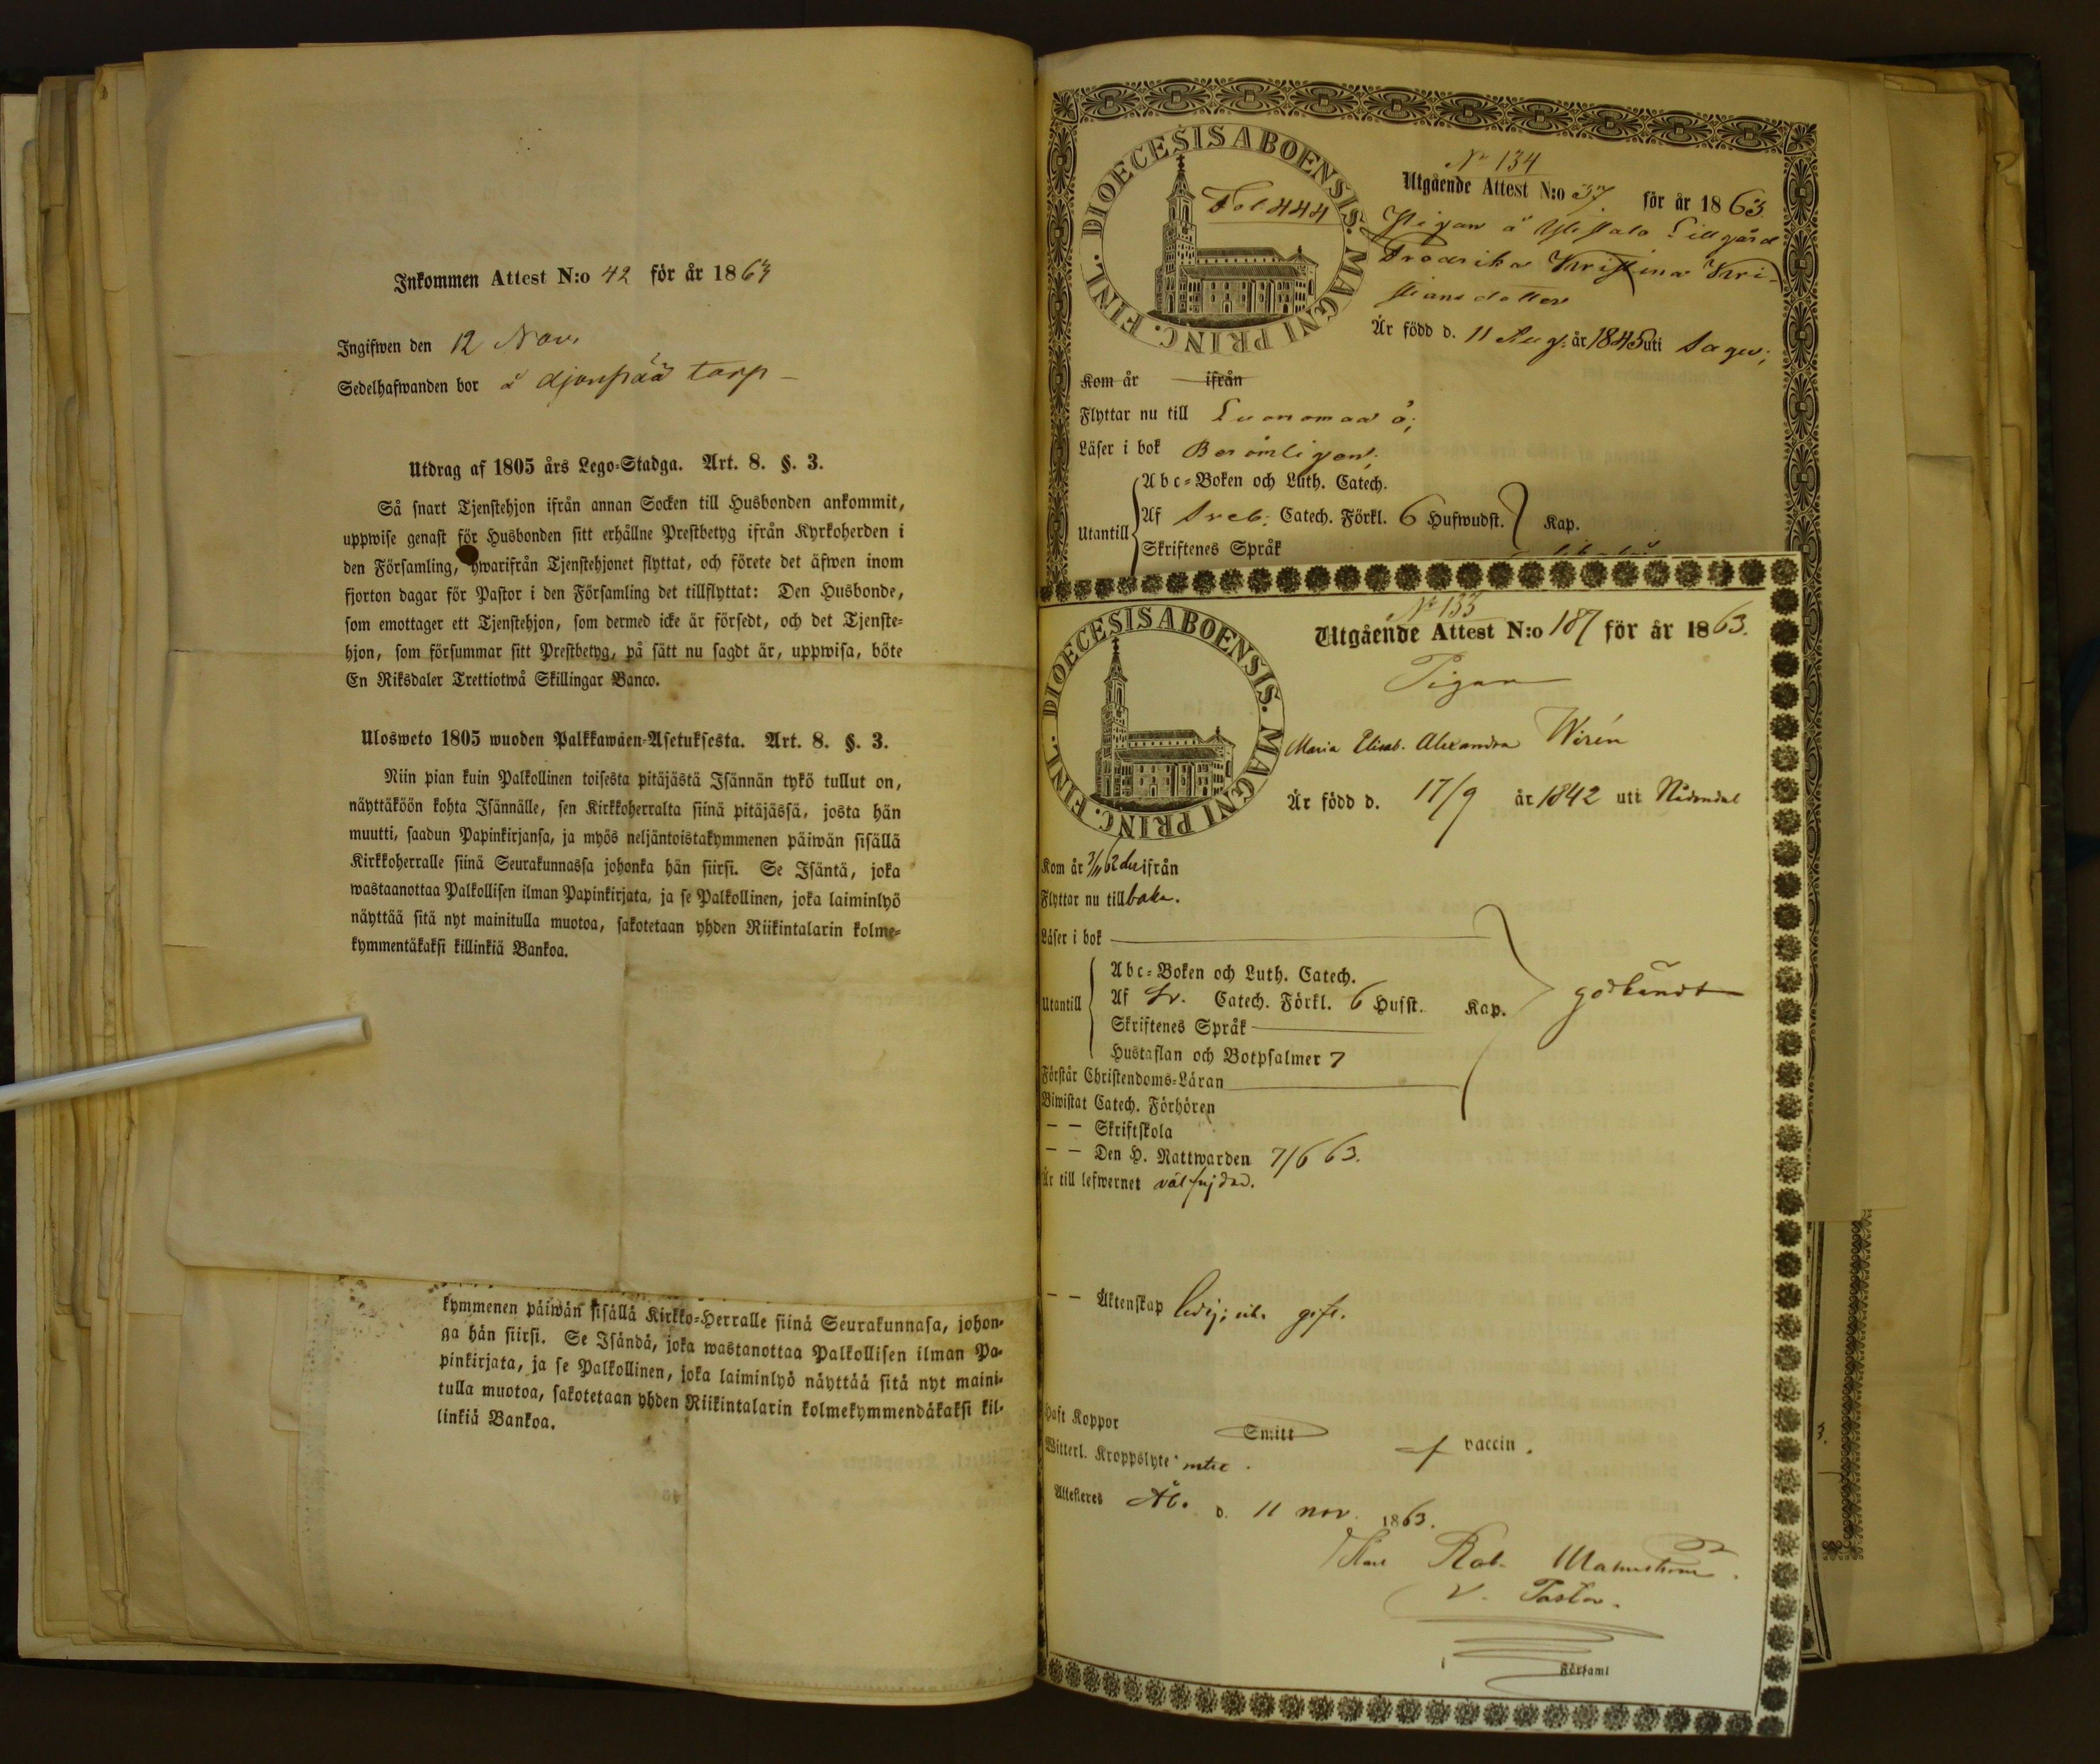 Inkommen Attest N:o 42 för år 1863
Ingifwen den 12 Nov.
Sedelhafwanden bor å djonpää torp
Utdrag af 1805 års Lego-Stadga. Art. 8. §. 3.
Så snart Tjenstehjon ifrån annan Socken till Husbonden ankommit,
uppwise genast för Husbonden sitt erhållne Prestbetyg ifrån Kyrkoherden i
den Församling, hwarifrån Tjenstehjonet flyttat, och förete det äfwen inom
fjorton dagar för Pastor i den Församling det tillflyttat: Den Husbonde,
som emottager ett Tjenstehjon, som dermed icke är försedt, och det Tjenste-
hjon, som försummar sitt Prestbetyg, på sätt nu sagdt är, uppwisa, böte
En Riksdaler Trettiotwå Skillingar Banco.
Ulosweto 1805 wuoden Palkkawäen-Asetuksesta. Art. 8. §. 3.
Niin pian kuin Palkollinen toisesta pitäjästä Isännän tykö tullut on,
näyttäköön kohta Isännälle, sen Kirkkoherralta siinä pitäjässä, josta hän
muutti, saadun Papinkirjansa, ja myös neljäntoistakymmenen päiwän sisällä
Kirkkoherralle siinä Seurakunnassa johonka hän siirsi. Se Isäntä, joka
wastaanottaa Palkollisen ilman Papinkirjata, ja se Palkollinen, joka laiminlyö
näyttää sitä nyt mainitulla muotoa, sakotetaan yhden Riikintalarin kolme-
kymmentäkaksi killinkiä Bankoa.
kymmenen päiwän sisällä Kirkko-Herralle siinä Seurakunnasa, johon-
ga hän siirsi. Se Isändä, joka wastanottaa Palkollisen ilman Pa-
pinkirjata, ja se Palkollinen, joka laiminlyö näyttää sitä nyt maini-
tulla muotoa, sakotetaan yhden Riikintalarin kolmekymmendäkaksi kil-
linkiä Bankoa.
DIOECESIS ABOENSIS. MAGNI PRINC. FINL.
Fol 444
No 134
Utgående Attest N:o 37 för år 1863
Pigan å Lillgård
Fredrika Kristina Kri-
stiansdotter
Är född d. 11 Aug. år 1845 uti Sagu;
Kom år ifrån
Flyttar nu till Luonomaa ö;
Läser i bok Berömligen;
Utantill
Abc-Boken och Luth. Catech.
Af Sveb. Catech. Förkl. 6 Hufwudst. Kap.
Skriftenes Språk
DIOECESIS ABOENSIS. MAGNI PRINC. FINL.
No 133
Utgående Attest N:o 187 för år 1863.
Pigan
Maria Elisab. Alexandra Wirén
Är född d. 17/9 år 1842 uti Nådendal
Kom år 3/11 62 der ifrån
Flyttar nu tillbaka.
Läser i bok
Utantill
Abc-Boken och Luth. Catech.
Af Sv. Catech. Förkl. 6 Hufst. Kap.
Skriftenes Språk
Hustaflan och Botpsalmer 7
godkändt
Förstår Christendoms-Läran
Biwistat Catech. Förhören
— — Skriftskola
— — Den H. Nattwarden 7/6 63.
Är till lefwernet välfrejdad.
— — Äktenskap ledig; gift.
Haft Koppor Smitt vaccin.
Witterl. Kroppslyte intet.
Attesteres Åbo d. 11 nov. 1863.
Karl Rob. Malmström.
V. Pastor.
i Församl
3.